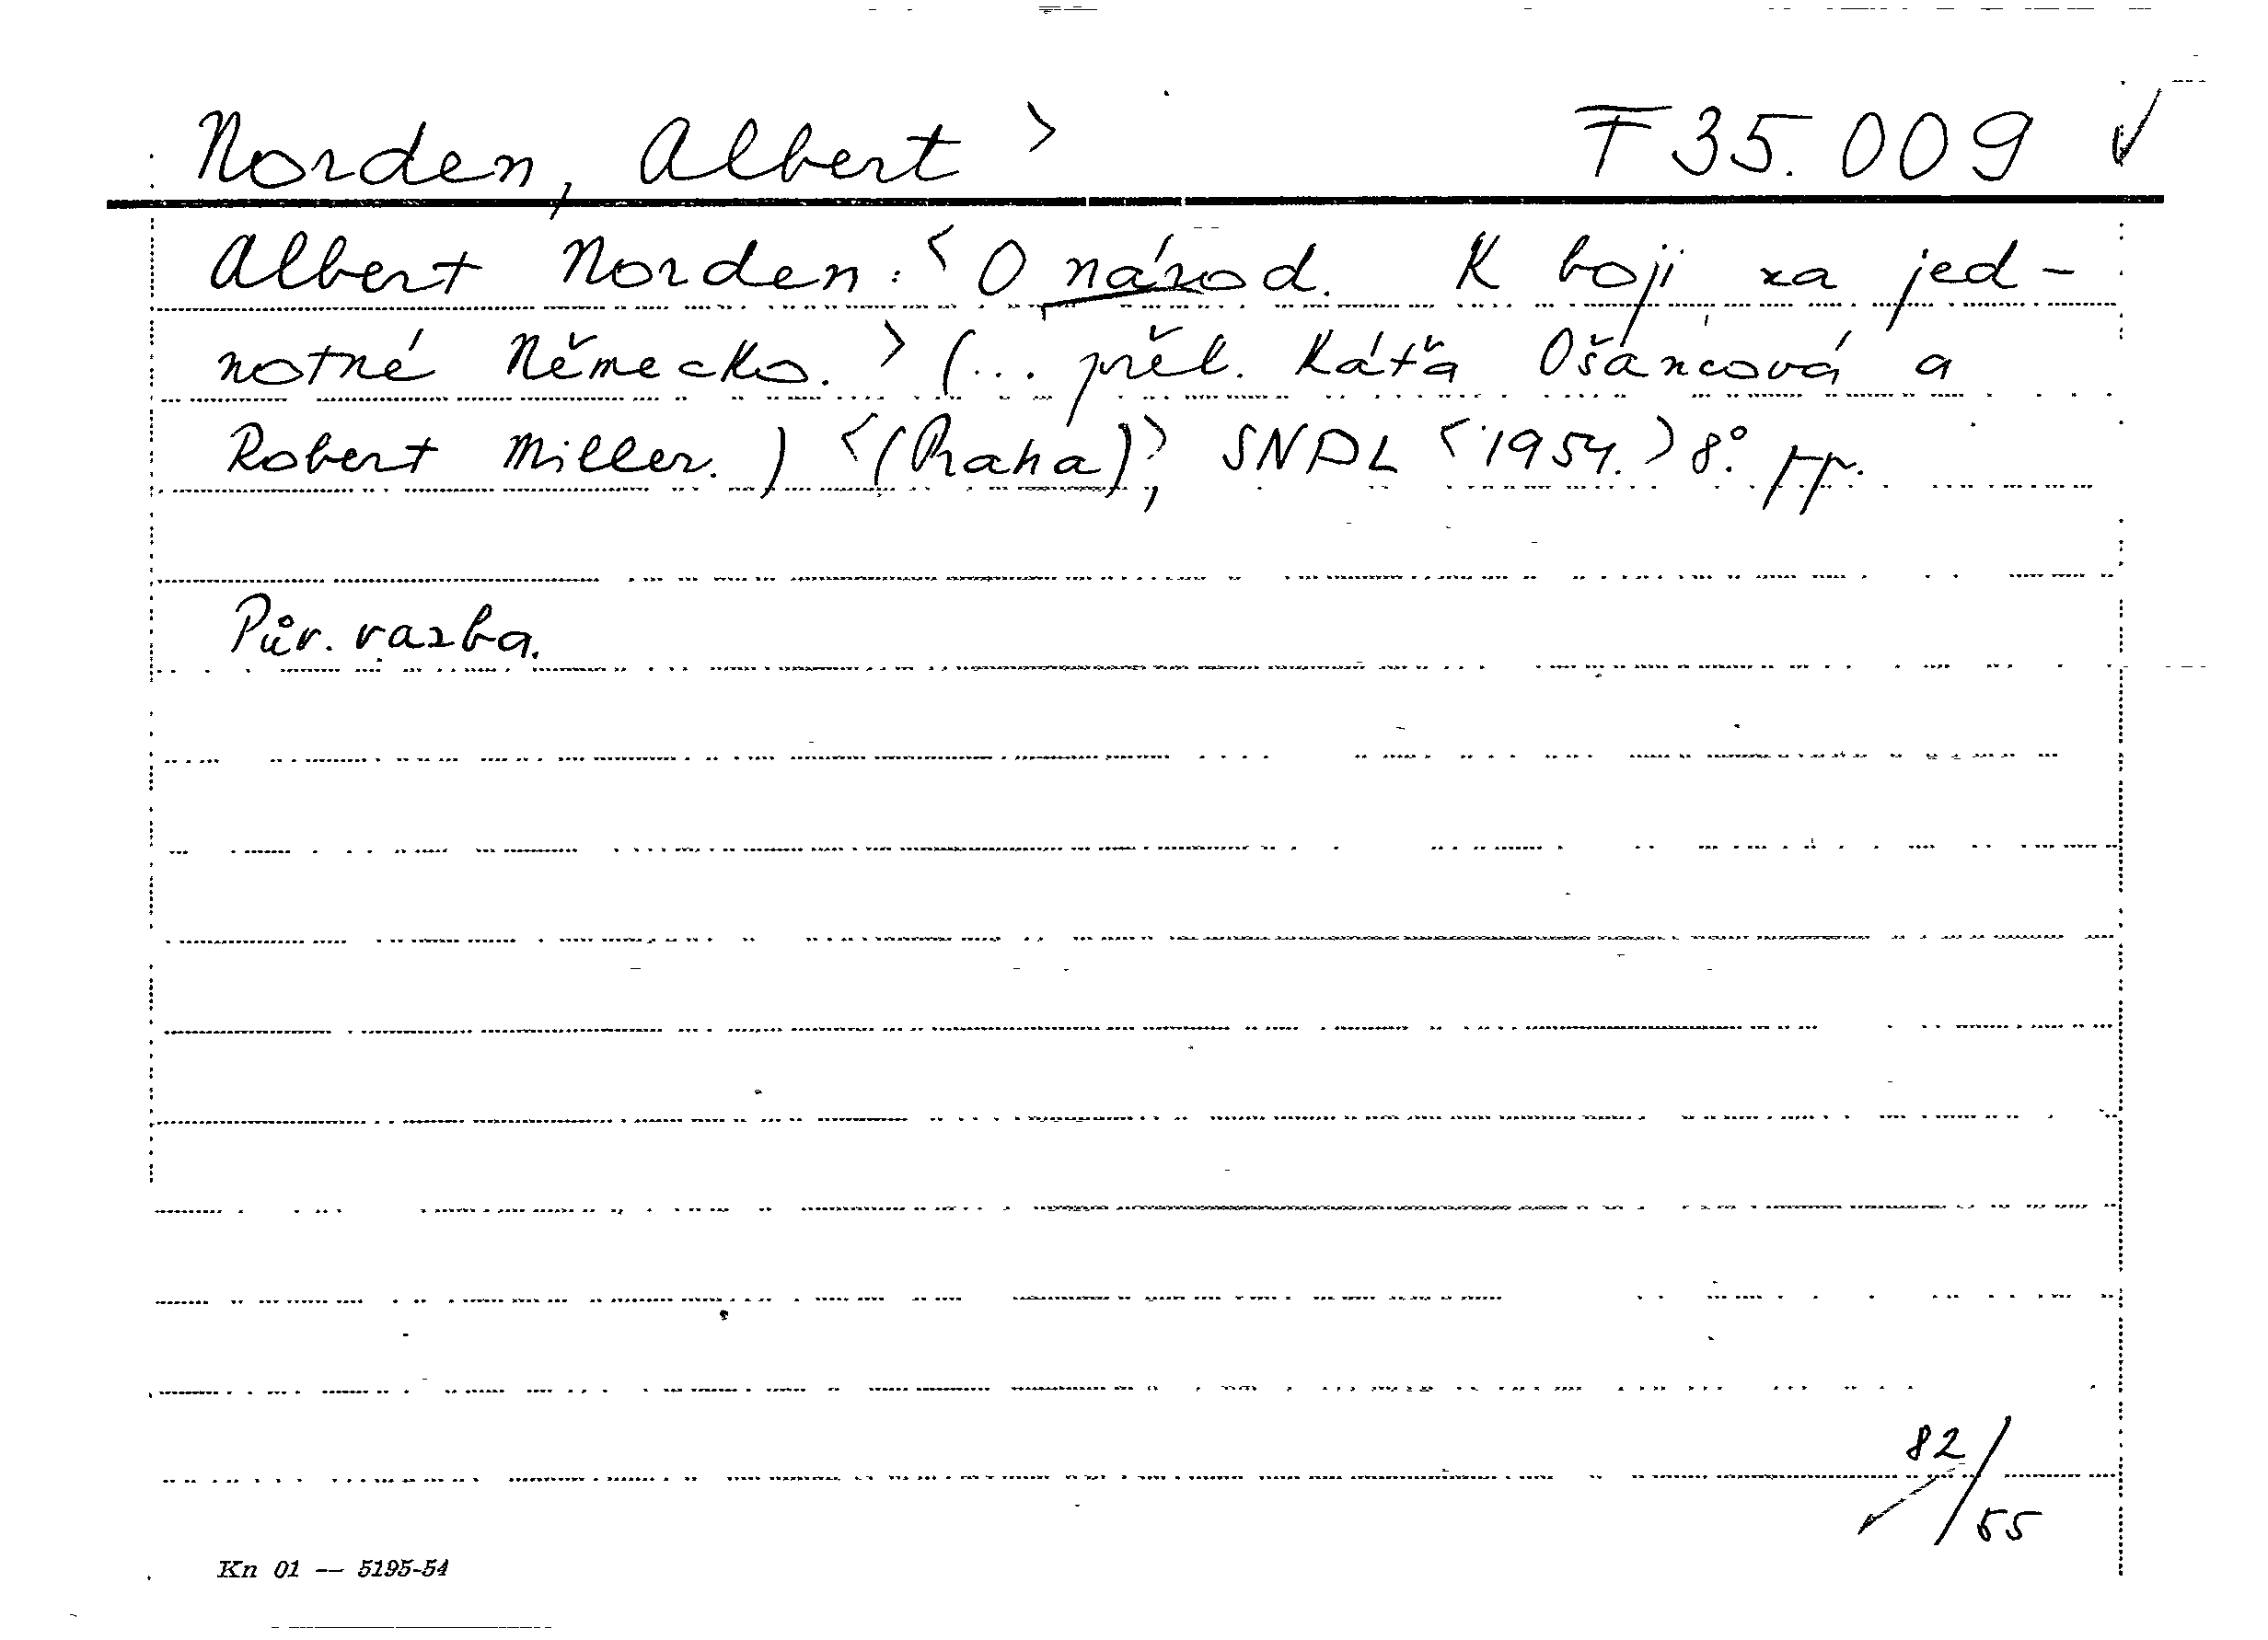 Norden, Albert > F 35.009 ✓
Albert Norden: <O národ. K boji za jed-
notné Německo.> (... přel. Káťa Ošancová a
Robert Miller.) <(Praha)>, SNPL <1954.> 8°. pp.
Pův. vazba.
82/55
Kn 01 — 5195-54